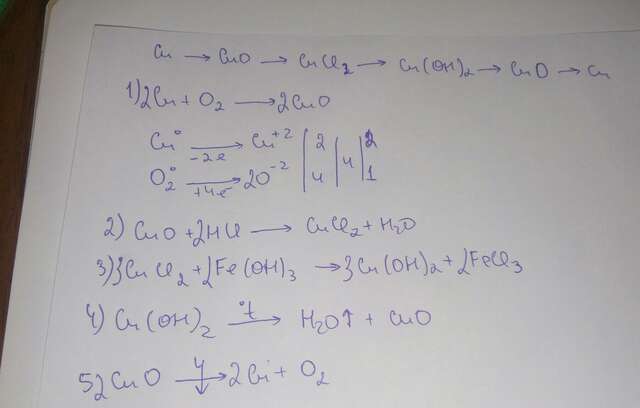 Cu → CuO → CuCl₂ → Cu(OH)₂ → CuO → Cu
1) 2Cu + O₂ → 2CuO
Cu⁰ –2e→ Cu⁺² | 2 | 4 | 2
O₂⁰ +4e⁻→ 2O⁻² | 4 | | 1
2) CuO + 2HCl → CuCl₂ + H₂O
3) 3CuCl₂ + 2Fe(OH)₃ → 3Cu(OH)₂ + 2FeCl₃
4) Cu(OH)₂ °t→ H₂O↑ + CuO
5) 2CuO → 2Cu + O₂